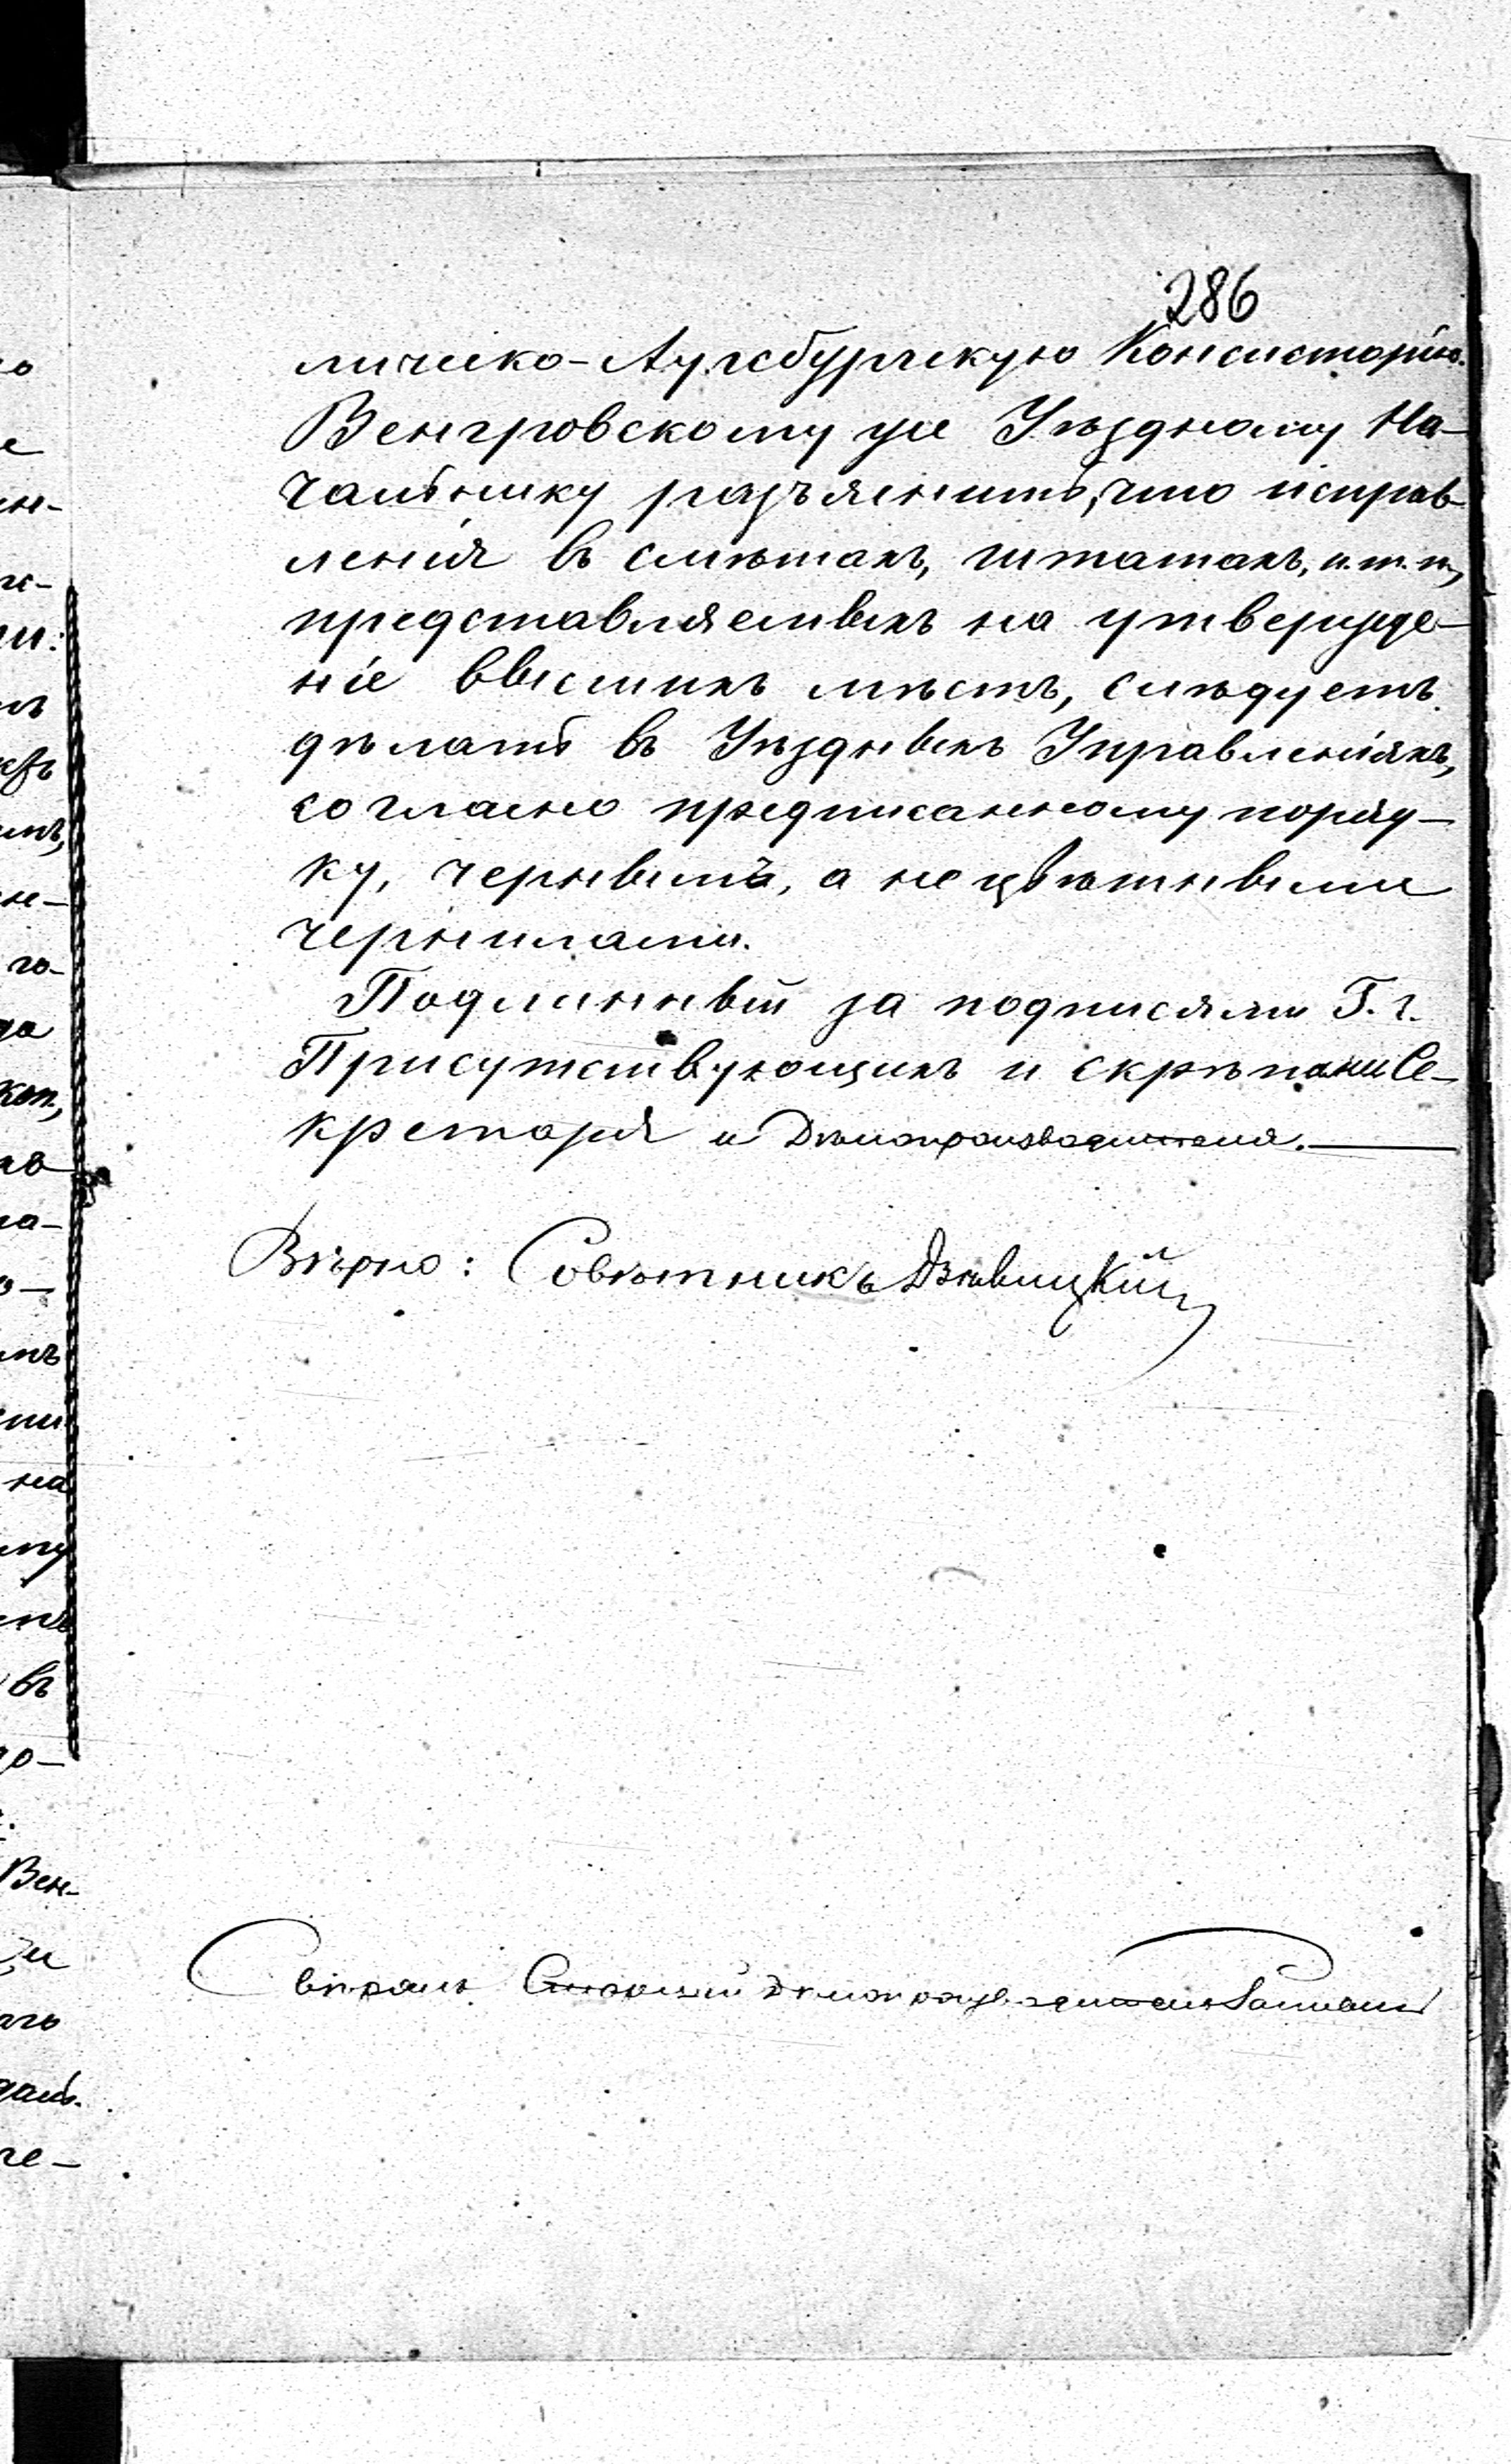 286
лическо-Аугсбургскую Консисторію.
Венгровскому же Уѣздному На-
чальнику разъяснить, что исправ-
ленія въ смѣтахъ, штатахъ, и. т. п.,
представляемыхъ на утвержде-
ніе высшихъ мѣстъ, слѣдуетъ
дѣлать въ Уѣздныхъ Управленіяхъ,
согласно предписанному поряд-
ку, черными, а не цвѣтными
чернилами.
Подлинный за подписями Г. г.
Присутствующихъ и скрѣпами Се-
кретаря и Дѣлопроизводителя.
Вѣрно: Совѣтникъ
Свѣрялъ Старшій Дѣлопроизводитель